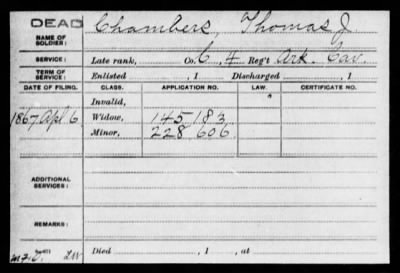 DEAD
NAME OF SOLDIER: Chambers, Thomas J
SERVICE: Late rank, Co. C, 4 Reg't Ark. Cav.
TERM OF SERVICE: Enlisted , 1 Discharged , 1
DATE OF FILING. CLASS. APPLICATION NO. LAW. CERTIFICATE NO.
Invalid,
1867 Apl 6 Widow, 145,183
Minor, 228,606
ADDITIONAL SERVICES:
REMARKS:
Died , 1 , at